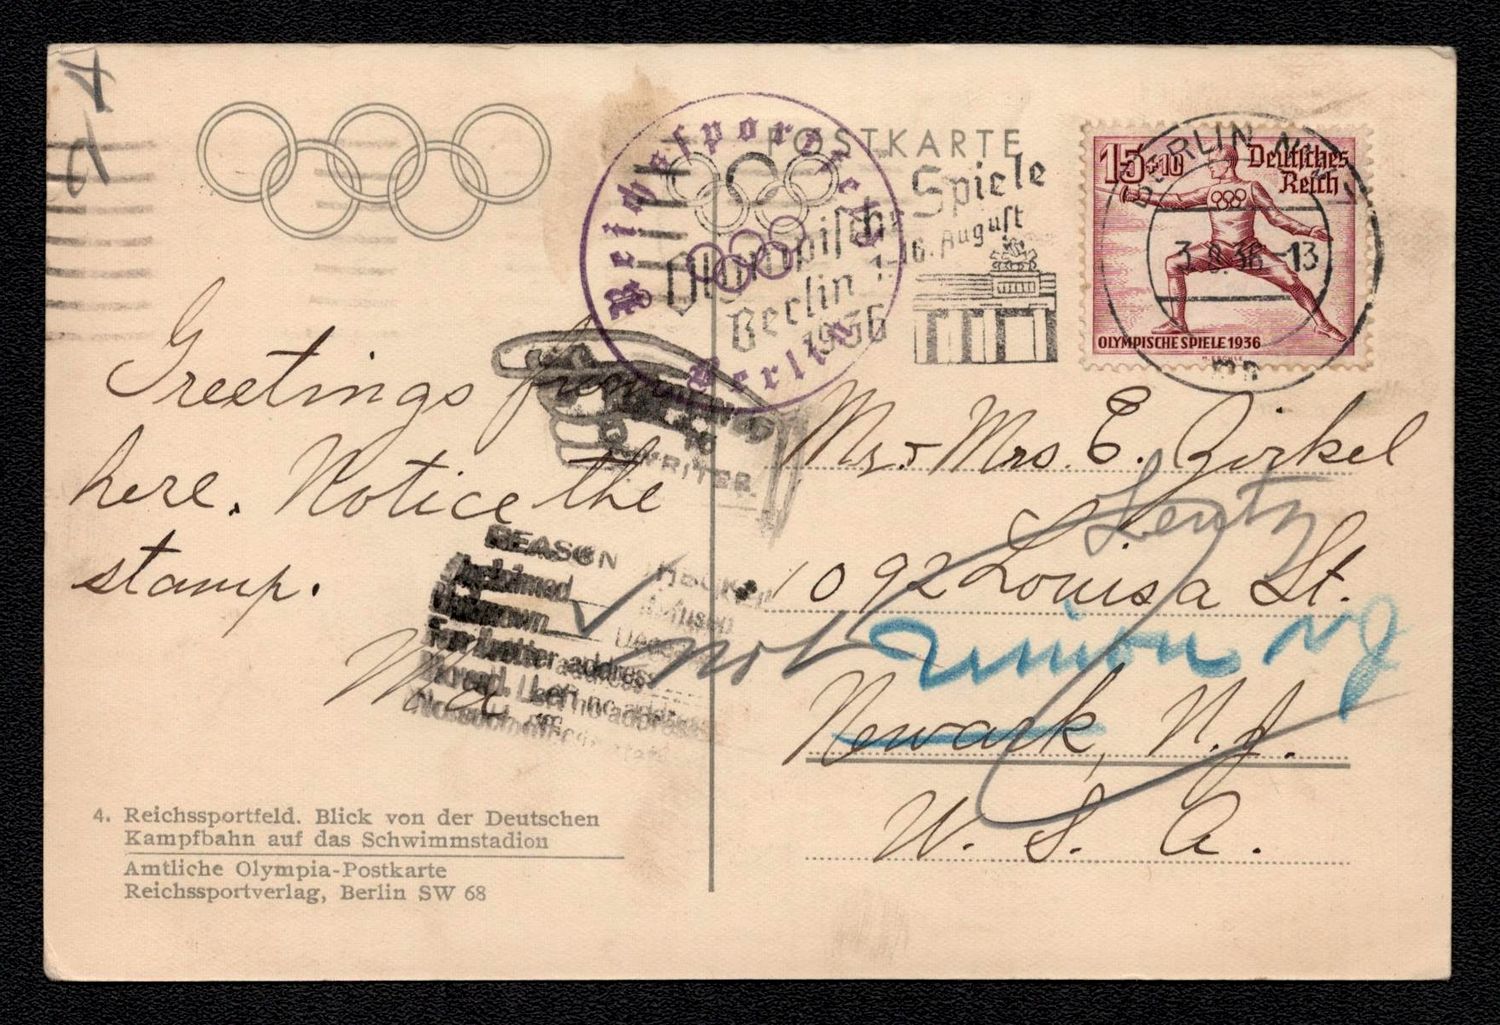 POSTKARTE
Reichssportfeld
Berlin
Olympische Spiele
Berlin 1.-16. August
1936
BERLIN
3.8.36-13
15+10 Deutsches
Reich
OLYMPISCHE SPIELE 1936
Greetings from
here. Notice the
stamp.
WRITER
REASON CHECKED
Unclaimed Refused
Unknown
For better address
Moved, Left no address
No such office in state
not
Mr & Mrs. E. Zirkel
1092 Louisa St.
Union NJ
Newark, N.J.
U. S. A.
4. Reichssportfeld. Blick von der Deutschen
Kampfbahn auf das Schwimmstadion
Amtliche Olympia-Postkarte
Reichssportverlag, Berlin SW 68